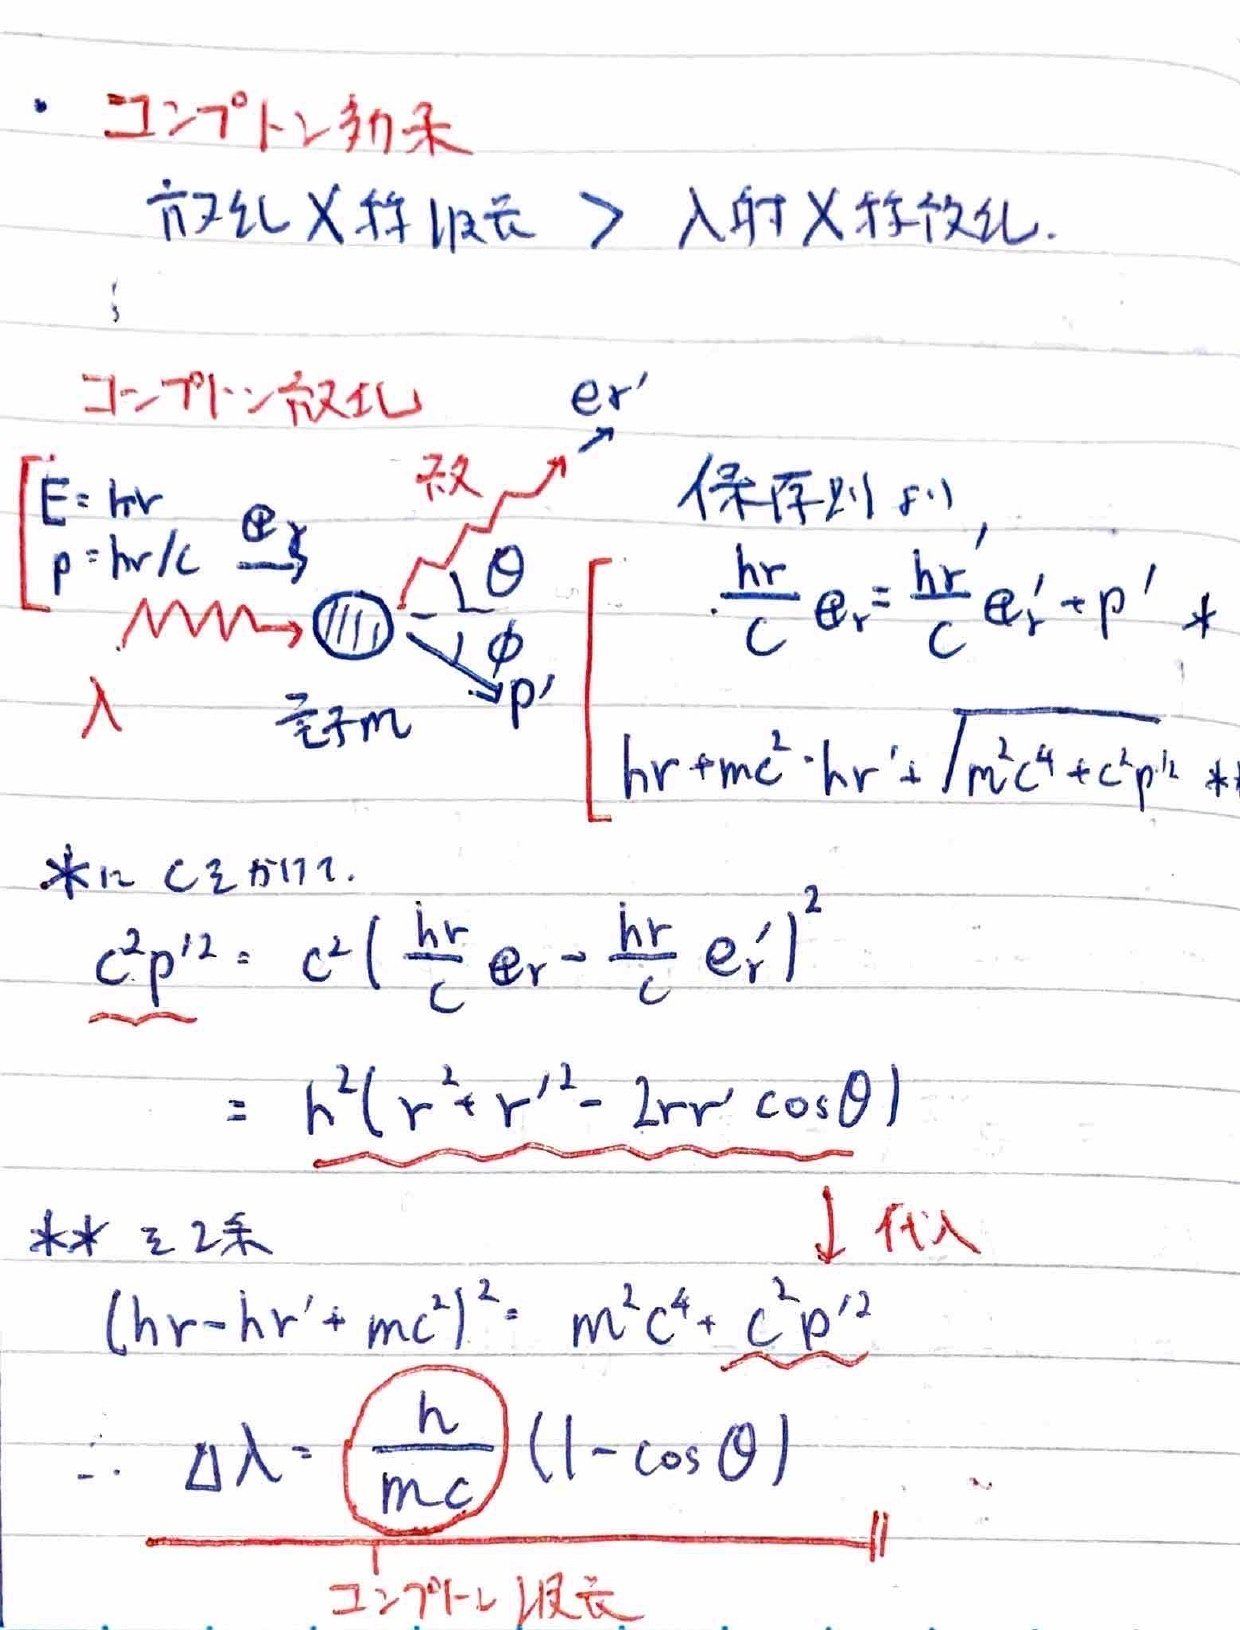 ・コンプトン効果
散乱X線波長 > 入射X線散乱.
コンプトン散乱
er'
E = hν
p = hν/c
er
散
θ
φ
p'
λ
電子m
保存則より,
hν/c er = hν'/c er' + p' *
hν + mc² = hν' + √(m²c⁴ + c²p'²) **
*に cをかけて.
c²p'² = c²(hν/c er - hν/c er')²
= h²(ν² + ν'² - 2νν' cosθ)
** を2乗
↓ 代入
(hν - hν' + mc²)² = m²c⁴ + c²p'²
∴ Δλ = h/mc (1 - cosθ)
コンプトン波長